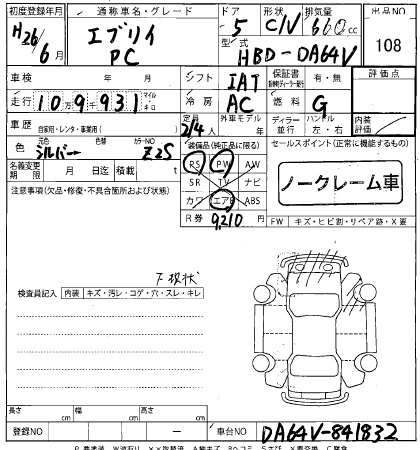 初度登録年月 通称車名・グレード ドア 形状 排気量 出品NO
H26/6月 エブリイ PC 5 C/V 660cc 108
型式 HBD-DA64V
車検 年 月 シフト IAT 保証書 有・無 評価点
走行 10万9千931 マイル キロ 冷房 AC 燃料 G
車歴 自家用・レンタ・事業用( ) 定員 2/4人 外車モデル 年 ディーラー 並行 ハンドル 左・右 内装評価
色 元色 シルバー 色替 カラーNO Z2S 装備品(純正品に限る) セールスポイント(正常に機能するもの)
名義変更期限 月 日迄 積載 t RS PW AW ノークレーム車
注意事項(欠品・修復・不具合箇所および状態) SR TV ナビ
カワ エアB ABS
R券 9210円 FW キズ・ヒビ割・リペア跡・X要
下検状
検査員記入 内装 キズ・汚レ・コゲ・穴・スレ・キレ
長さ cm 幅 cm 高さ cm
登録NO ー 車台NO DA64V-841832